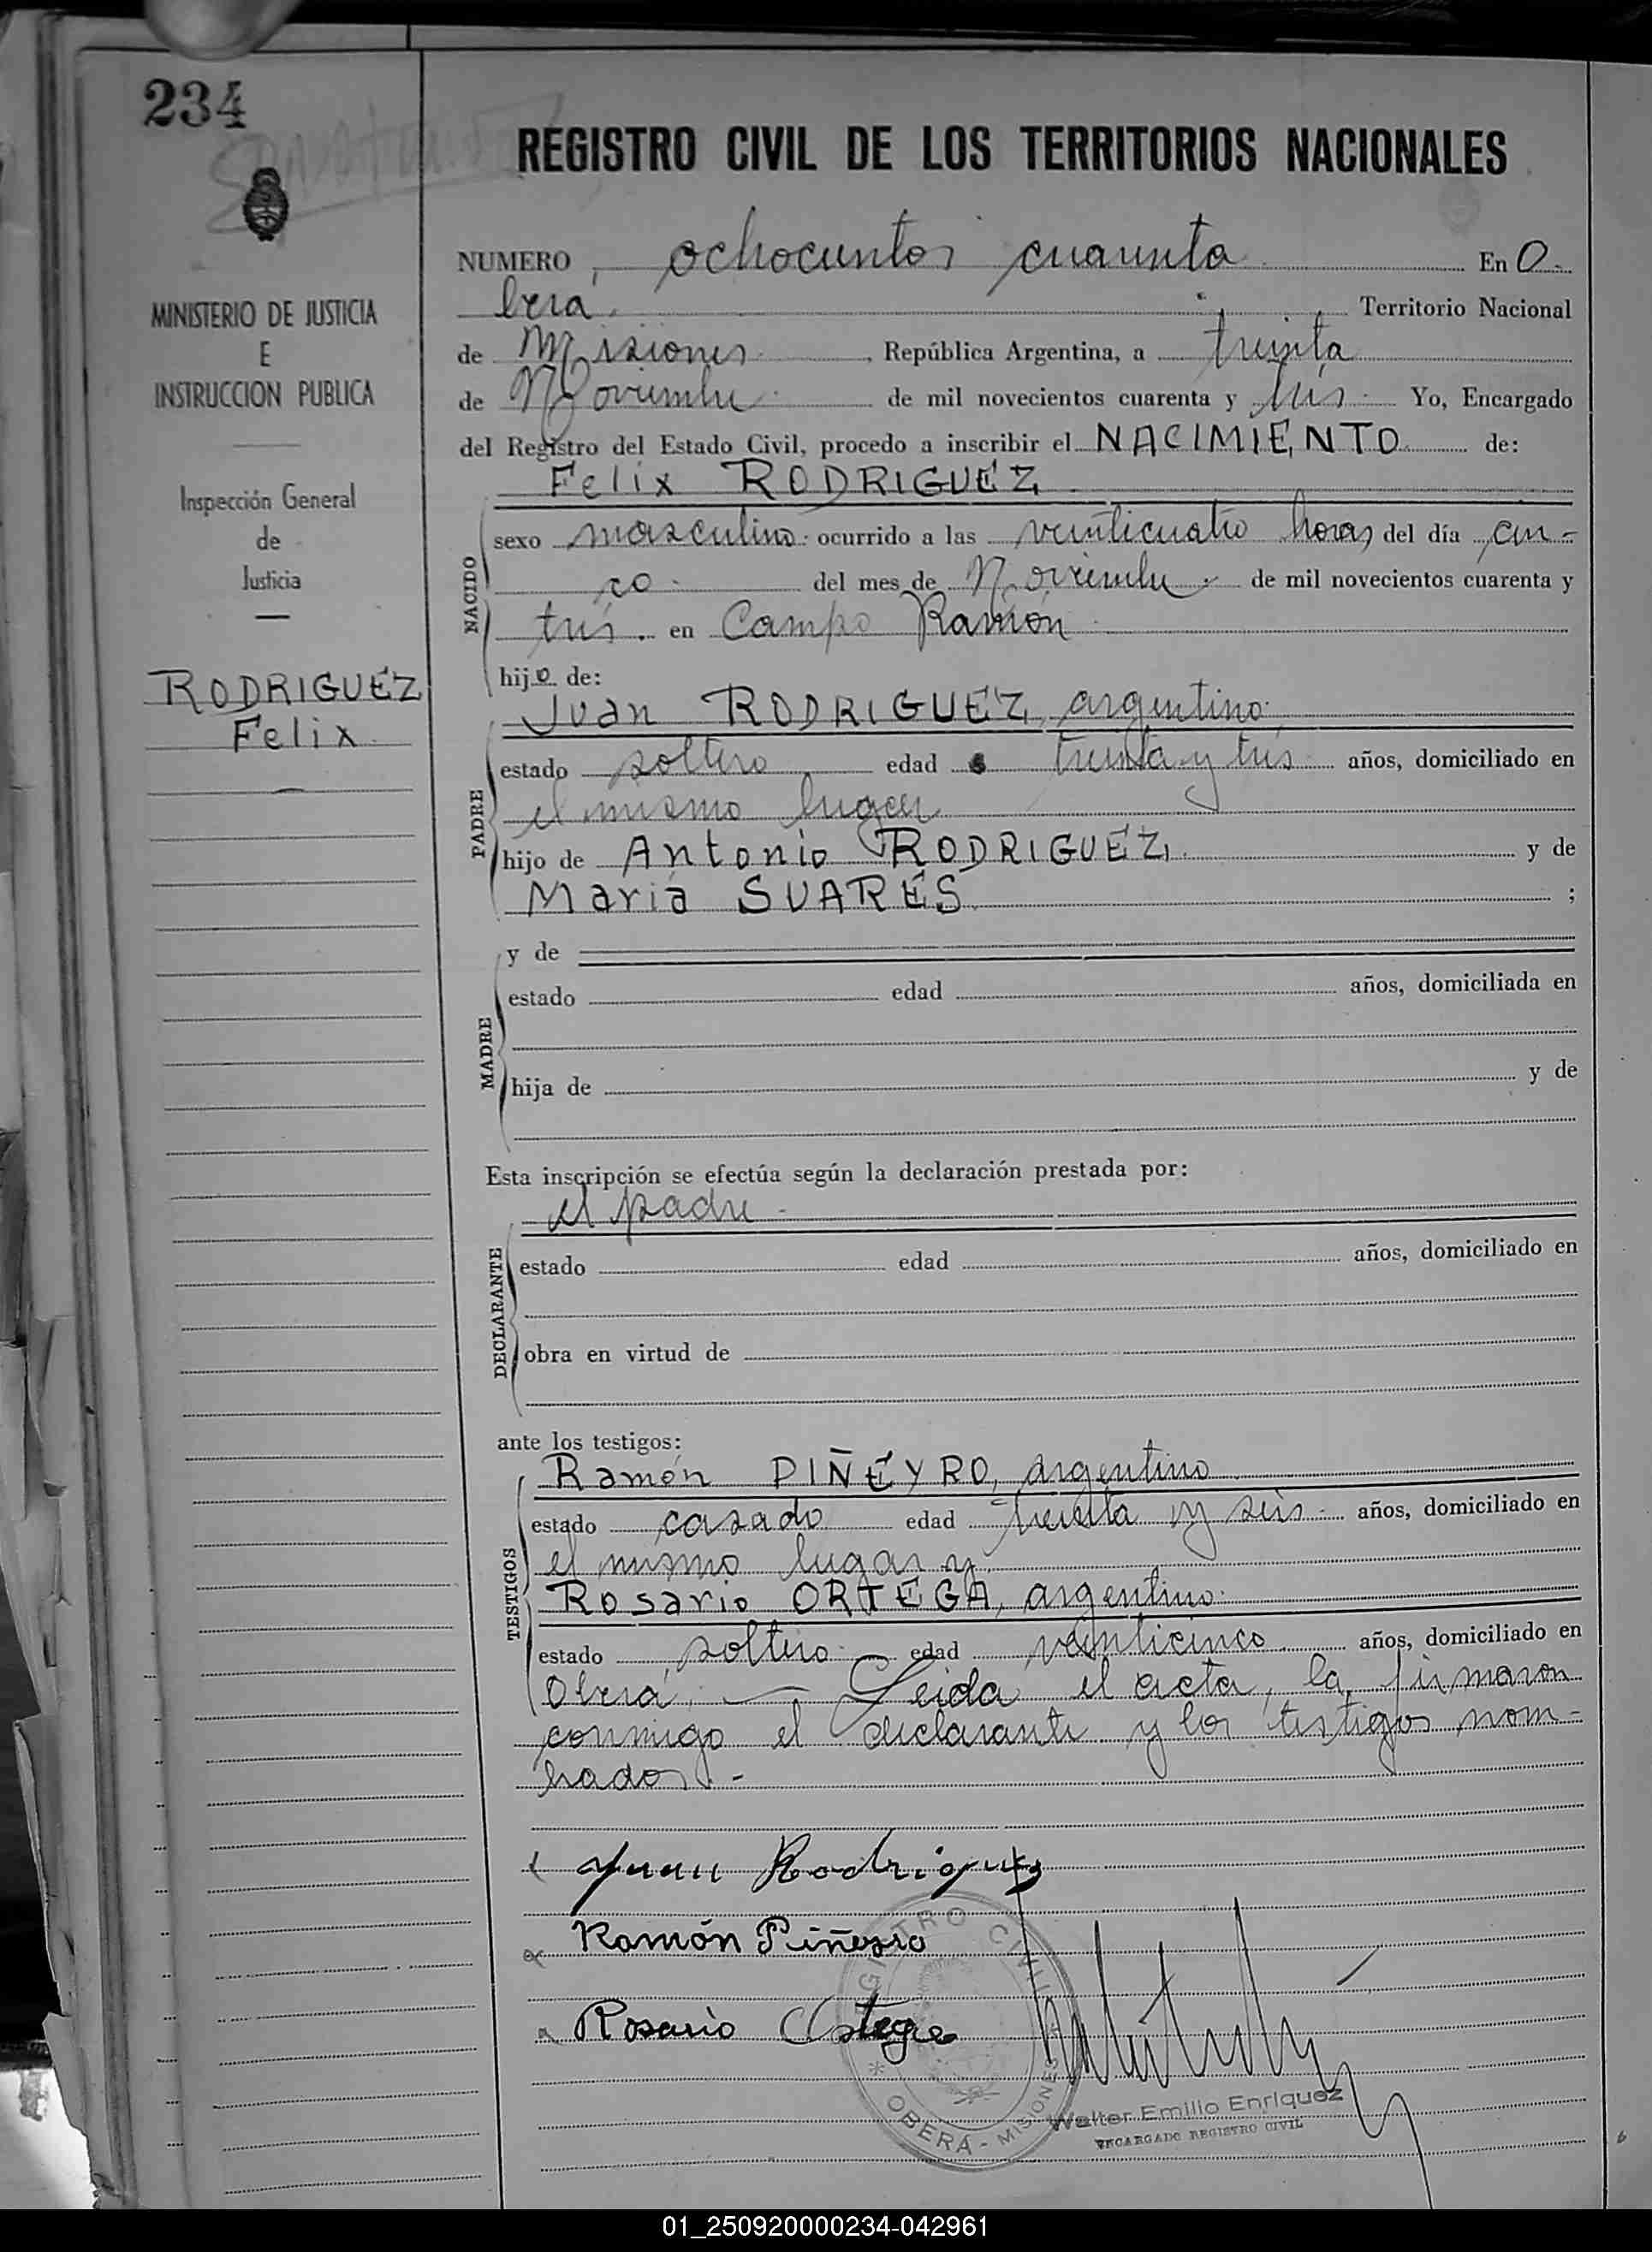 234
REGISTRO CIVIL DE LOS TERRITORIOS NACIONALES
NUMERO ochocientos cuarenta En O-
berá. Territorio Nacional
MINISTERIO DE JUSTICIA
E
INSTRUCCION PUBLICA
Inspección General
de
Justicia
RODRIGUEZ
Felix
de Misiones, República Argentina, a treinta
de Noviembre de mil novecientos cuarenta y tres. Yo, Encargado
del Registro del Estado Civil, procedo a inscribir el NACIMIENTO de:
Felix RODRIGUEZ
NACIDO
sexo masculino ocurrido a las veinticuatro horas del día cin-
co del mes de Noviembre de mil novecientos cuarenta y
tres. en Campo Ramón
hijo de:
PADRE
Juan RODRIGUEZ, argentino
estado soltero edad treinta y tres años, domiciliado en
el mismo lugar
hijo de Antonio RODRIGUEZ, y de
Maria SUARES. ;
MADRE
y de
estado edad años, domiciliada en
hija de y de
Esta inscripción se efectúa según la declaración prestada por:
el padre -
DECLARANTE
estado edad años, domiciliado en
obra en virtud de
ante los testigos:
TESTIGOS
Ramón PIÑEYRO, argentino
estado casado edad treinta y seis años, domiciliado en
el mismo lugar y
Rosario ORTEGA, argentino
estado soltero edad veinticinco años, domiciliado en
Oberá. — Leida el acta, la firmaron
conmigo el declarante y los testigos nom-
brados. -
Juan Rodriguez
Ramón Piñeyro
Rosario Ortega
REGISTRO CIVIL
* OBERÁ - MISIONES
Walter Emilio Enriquez
ENCARGADO REGISTRO CIVIL
01_250920000234-042961